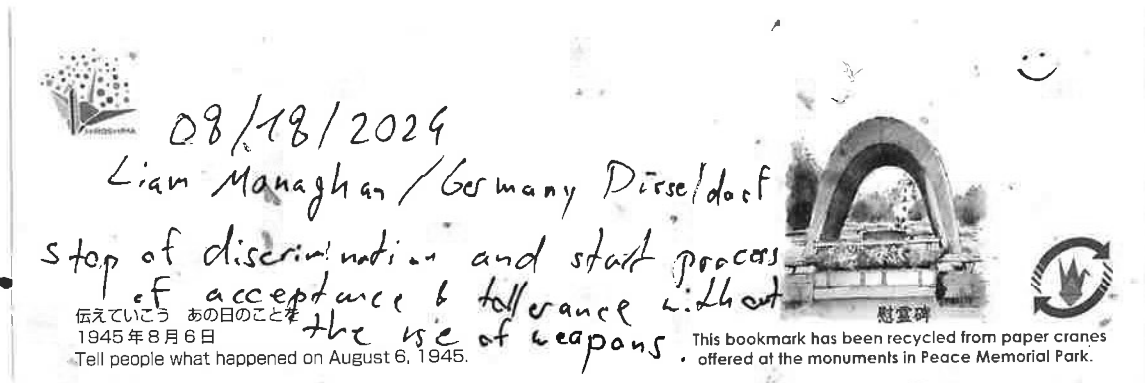 HIROSHIMA
08/18/2024
Liam Monaghan / Germany Düsseldorf
stop of discrimination and start process
of acceptance & tollerance without
the use of weapons.
伝えていこう あの日のことを
1945年8月6日
Tell people what happened on August 6, 1945.
慰霊碑
This bookmark has been recycled from paper cranes
offered at the monuments in Peace Memorial Park.